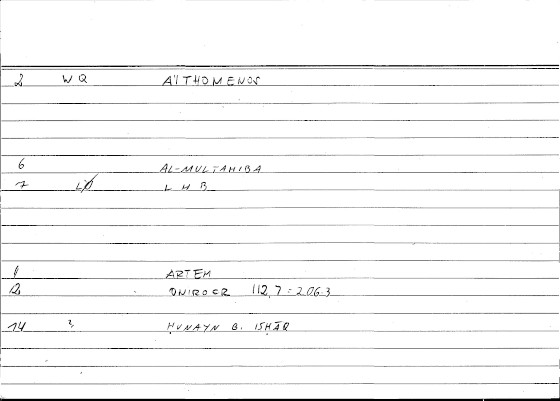 2 WQ AἴTHOMENOS
6 AL-MULTAHIBA
7 L H B
1 ARTEM
12 ONIROCR 112,7 = 206.3
14 2 ḤUNAYN B. ISḤĀQ